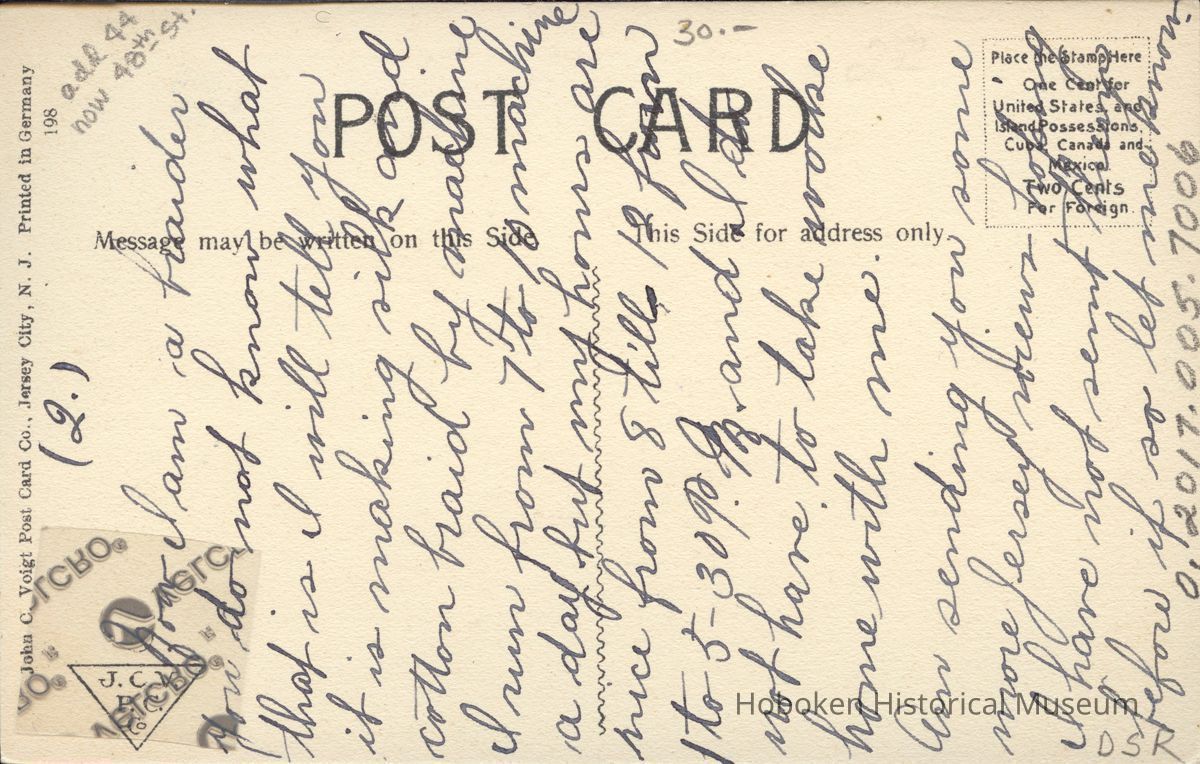 add 44
now 48th St.
30.-
198
John C. Voigt Post Card Co., Jersey City, N. J. Printed in Germany
POST CARD
Message may be written on this Side
This Side for address only.
Place the Stamp Here
One Cent for
United States, and
Island Possessions,
Cuba, Canada and
Mexico.
Two Cents
For Foreign.
J. C. V.
P. C.
Co.
VELCRO®
VELCRO®
VELCRO®
(2.)
Now I am a braider
you do not know what
that is I will tell you
it is making silk and
cotton braid by machine
I run from 7 to 10 machine
a day but my hours are
nice from 8 till 12 from
1 to 5-30 P.M. and I do
not have to take work
home with me.
Am sending you some
more Jersey views hope
I have not sent them
before if so let me know.
0.2017.005.7006
DSR
Hoboken Historical Museum